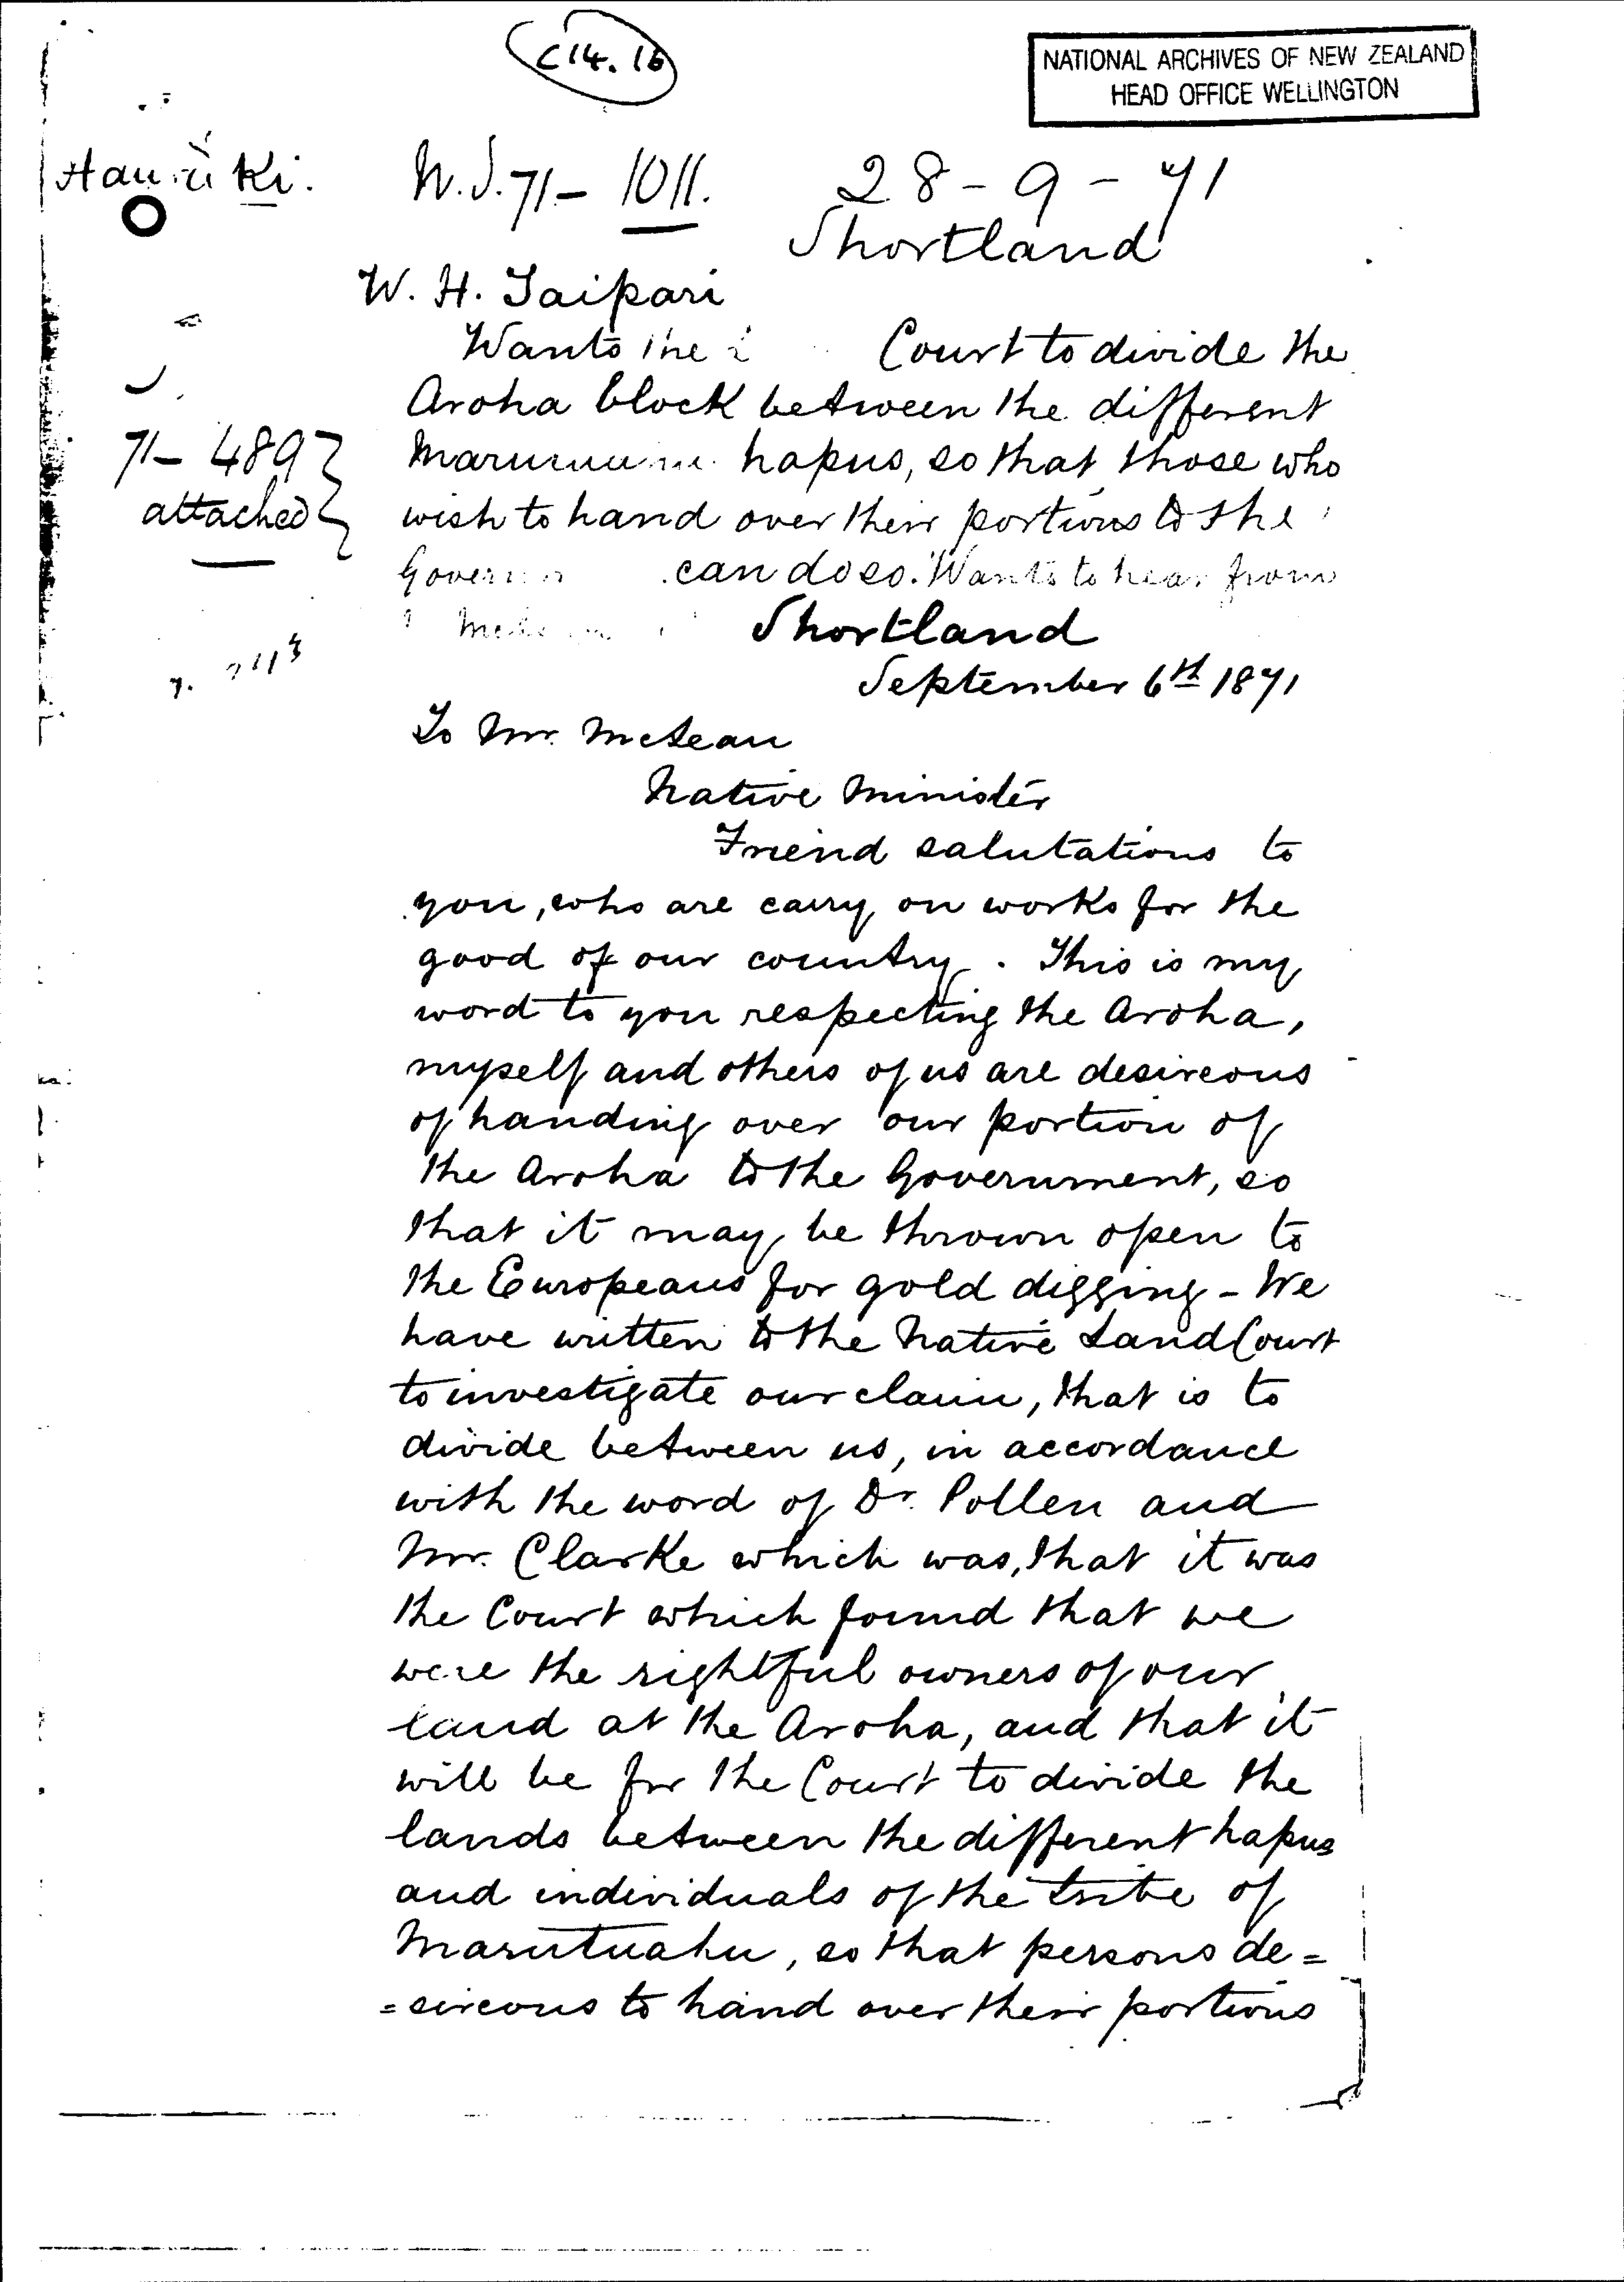 C14.16
NATIONAL ARCHIVES OF NEW ZEALAND
HEAD OFFICE WELLINGTON
Hauraki.
N.S. 71 - 1011.
28 - 9 - 71
Shortland
W. H. Taipari
Wants the Court to divide the
Aroha block between the different
hapus, so that those who
71 - 489
attached
wish to hand over their portions to the
can do so. Wants to hear from
Shortland
September 6th 1871
To Mr. McLean
Native Minister
Friend salutations to
you, who are carry on works for the
good of our country. This is my
word to you respecting the Aroha,
myself and others of us are desireous
of handing over our portion of
the Aroha to the Government, so
that it may be thrown open to
the Europeans for gold digging - We
have written to the Native Land Court
to investigate our claim, that is to
divide between us, in accordance
with the word of Dr. Pollen and
Mr. Clarke which was, that it was
the Court which found that we
were the rightful owners of our
land at the Aroha, and that it
will be for the Court to divide the
lands between the different hapus
and individuals of the tribe of
Marutuahu, so that persons de=
=sireous to hand over their portions